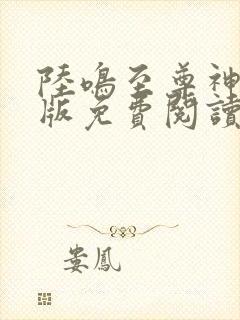 陸鳴至尊神
版免費閱讀
婁鳳